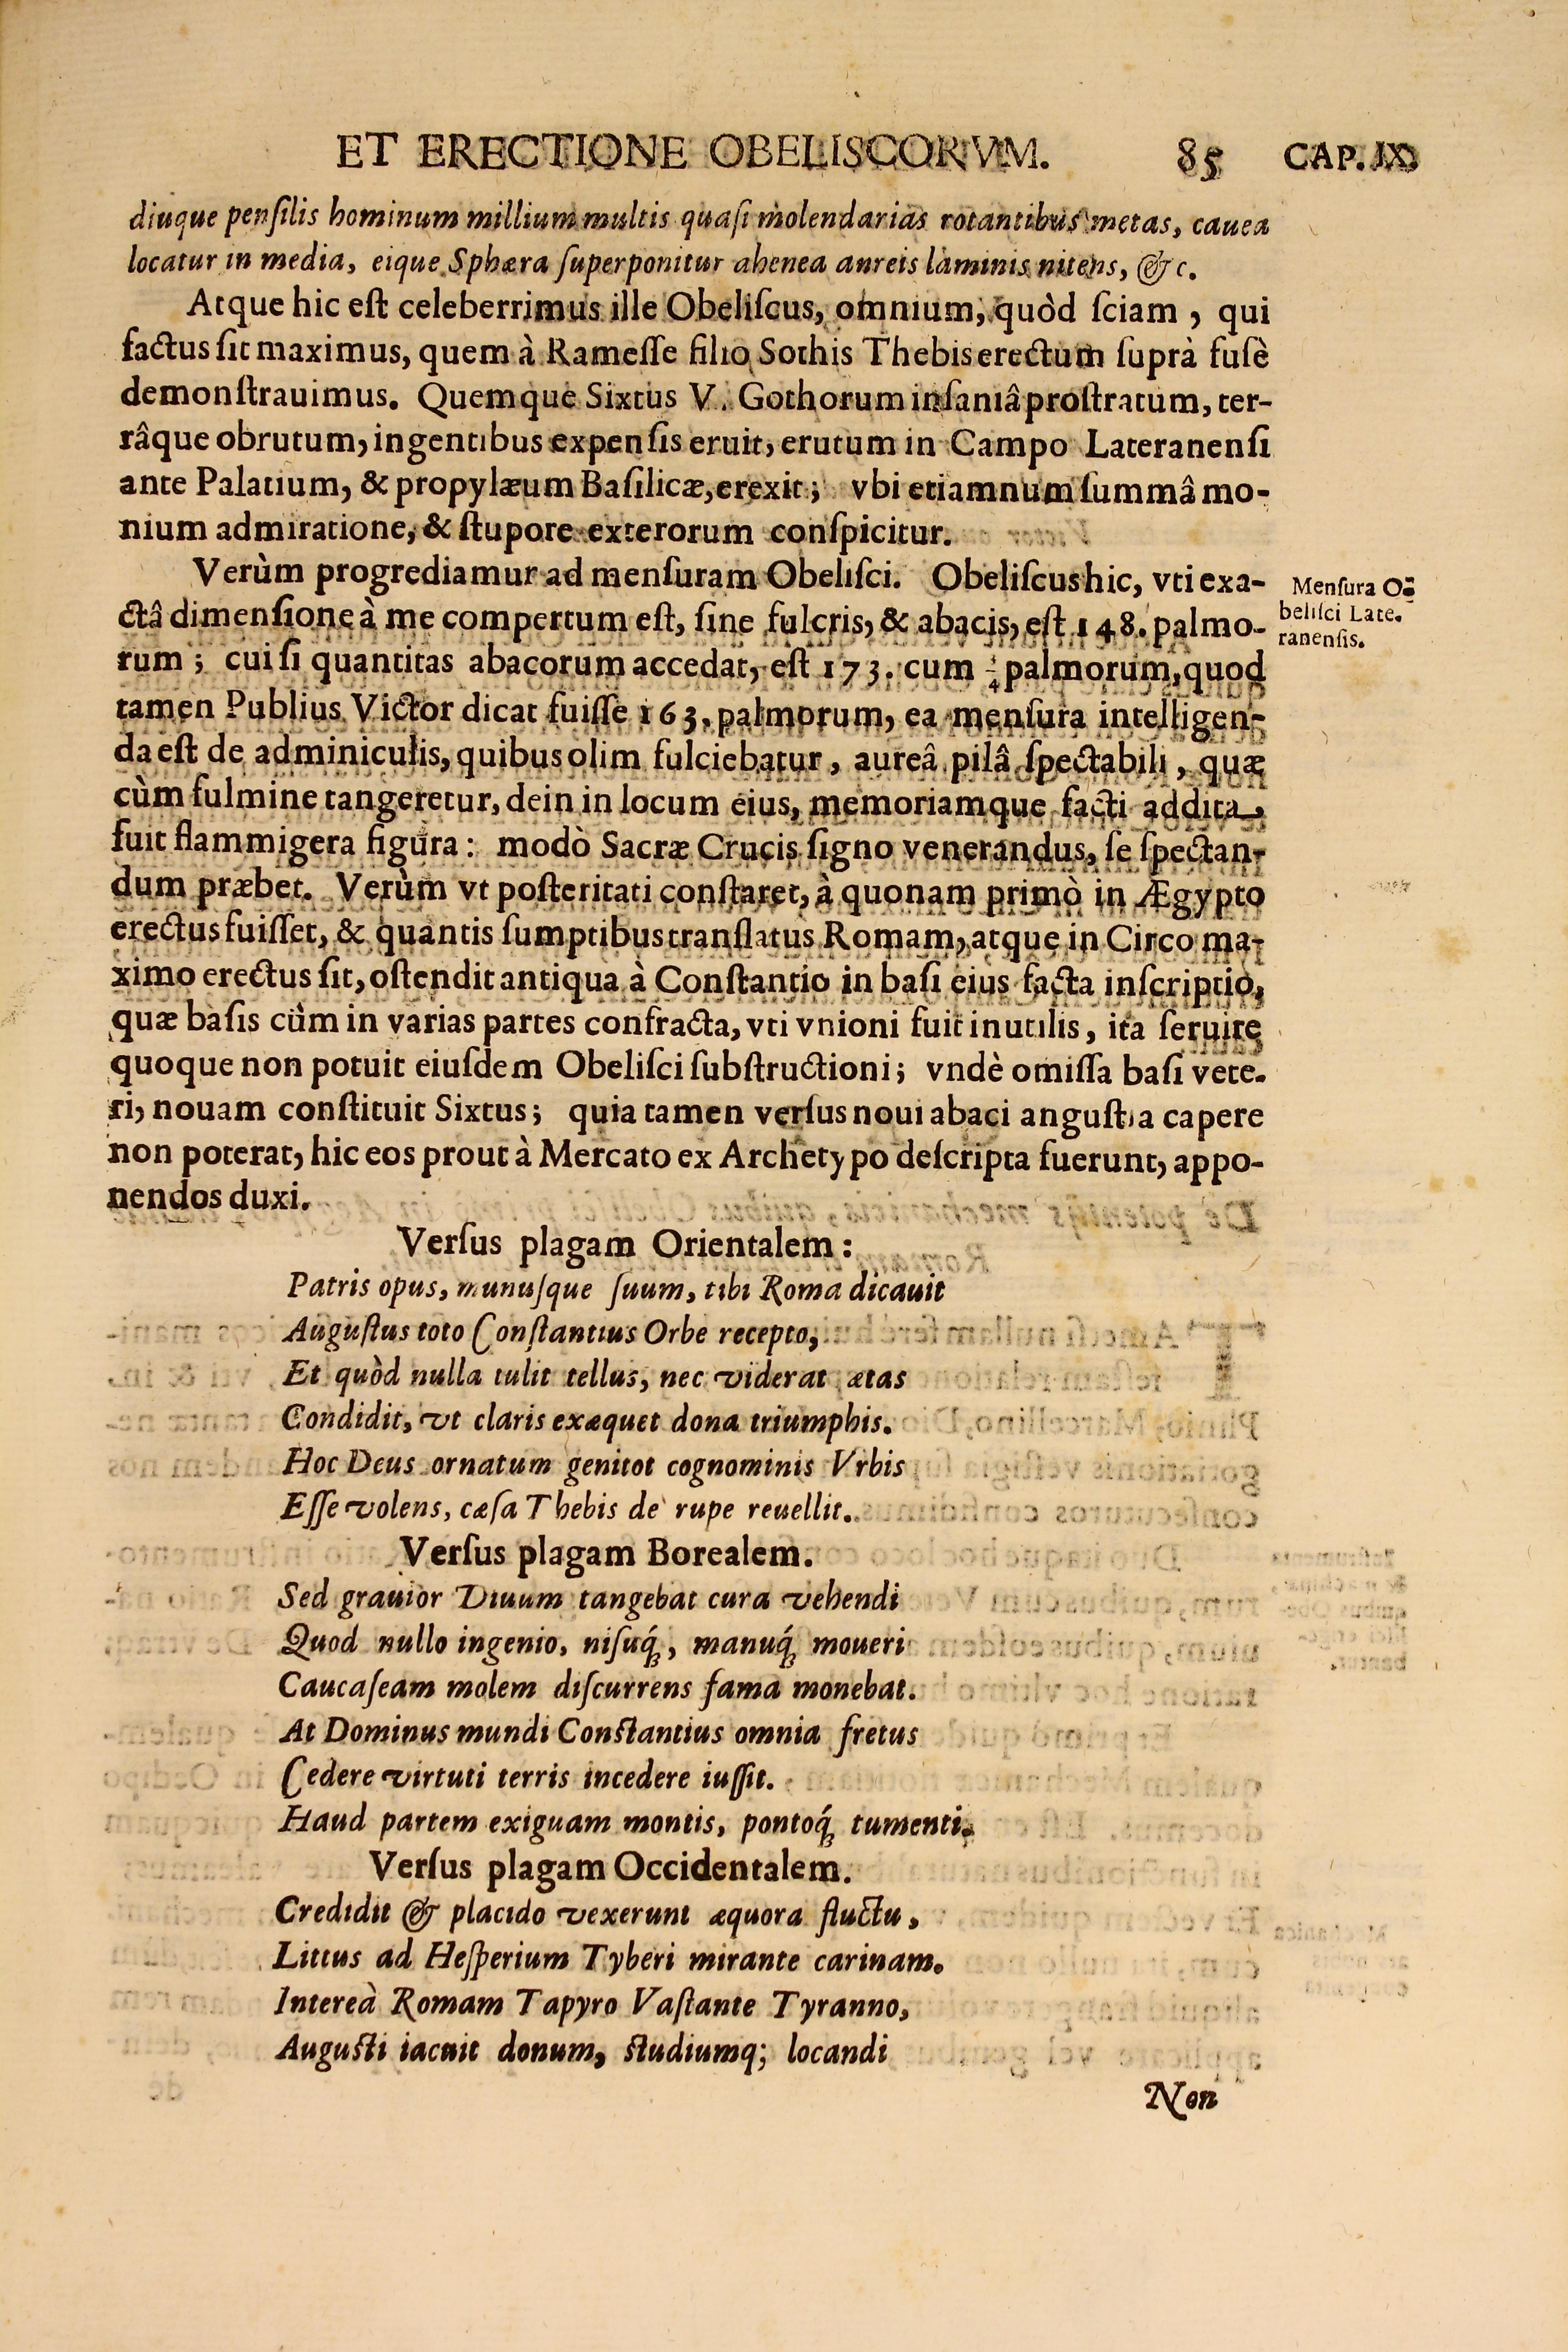 ET ERECTIONE OBELISCORVM. 85 CAP. IX.
diuque penſilis hominum millium multis quaſi molendarias rotantibus metas, cauea
locatur in media, eique Sphæra ſuperponitur ahenea aureis laminis nitens, &c.
Atque hic eſt celeberrimus ille Obeliſcus, omnium, quòd ſciam, qui
factus ſit maximus, quem à Rameſſe filio Sothis Thebis erectum ſuprà fuſè
demonſtrauimus. Quemque Sixtus V. Gothorum inſaniâ proſtratum, ter-
râque obrutum, ingentibus expenſis eruit, erutum in Campo Lateranenſi
ante Palatium, & propylæum Baſilicæ, erexit; vbi etiamnum ſummâ mo-
nium admiratione, & ſtupore exterorum conſpicitur.
Verùm progrediamur ad menſuram Obeliſci. Obeliſcus hic, vti exa-
ctâ dimenſione à me compertum eſt, ſine fulcris, & abacis, eſt 148. palmo-
rum; cui ſi quantitas abacorum accedat, eſt 173. cum 1/4 palmorum, quod
tamen Publius Victor dicat fuiſſe 163. palmorum, ea menſura intelligen-
da eſt de adminiculis, quibus olim fulciebatur, aureâ pilâ ſpectabili, quæ
cùm fulmine tangeretur, dein in locum eius, memoriamque facti addita
fuit flammigera figura: modò Sacræ Crucis ſigno venerandus, ſe ſpectan-
dum præbet. Verùm vt poſteritati conſtaret, à quonam primò in Ægypto
erectus fuiſſet, & quantis ſumptibus tranſlatus Romam, atque in Circo ma-
ximo erectus ſit, oſtendit antiqua à Conſtantio in baſi eius facta inſcriptio,
quæ baſis cûm in varias partes confracta, vti vnioni fuit inutilis, ita ſeruire
quoque non potuit eiuſdem Obeliſci ſubſtructioni; vndè omiſſa baſi vete-
ri, nouam conſtituit Sixtus; quia tamen verſus noui abaci anguſtia capere
non poterat, hic eos prout à Mercato ex Archetypo deſcripta fuerunt, appo-
nendos duxi.
Menſura O-
beliſci Late-
ranenſis.
Verſus plagam Orientalem:
Patris opus, munuſque ſuum, tibi Roma dicauit
Auguſtus toto Conſtantius Orbe recepto,
Et quòd nulla tulit tellus, nec viderat ætas
Condidit, vt claris exæquet dona triumphis.
Hoc Deus ornatum genitot cognominis Vrbis
Eſſe volens, cæſa Thebis de rupe reuellit.
Verſus plagam Borealem.
Sed grauior Diuum tangebat cura vehendi
Quod nullo ingenio, niſuq́;, manuq́; moueri
Caucaſeam molem diſcurrens fama monebat.
At Dominus mundi Conſtantius omnia fretus
Cedere virtuti terris incedere iuſſit.
Haud partem exiguam montis, pontoq́; tumenti.
Verſus plagam Occidentalem.
Credidit & placido vexerunt æquora fluctu,
Littus ad Heſperium Tyberi mirante carinam.
Intereà Romam Tapyro Vaſtante Tyranno,
Auguſti iacuit donum, ſtudiumq; locandi
Non